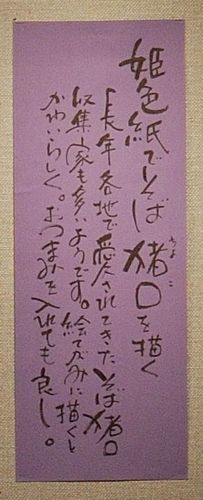 姫色紙でそば猪口を描く
ちょこ
長年各地で愛されてきたそば猪口
収集家も多いようです。絵てがみに描くと
かわいらしく。おつまみを入れても良し。